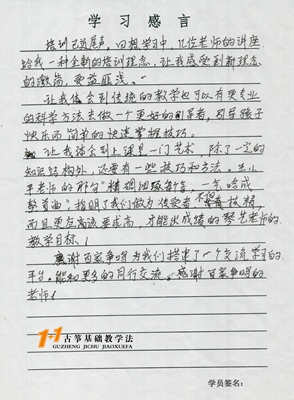 学习感言
培训已近尾声，回想学习中，几位老师的讲座
给我一种全新的培训理念，让我感受到新理念
的激荡，受益匪浅。
让我体会到传统的教学也可以有更专业
的科学方法去做一个更好的引导者，引导孩子
快乐而简单的快速掌握技巧。
让我体会到上课是一门艺术，除了一定的
知识结构外，还要有一些技巧和方法，王小
平老师的那句
指明了我们做为传授者不但技精，
而且更应高谈要求高，才能出成绩的琴艺老师的
教学目标！
感谢百家争鸣为我们搭建了一个交流学习的
平台。能和更多的同行交流。感谢百家争鸣的
老师！
1+1古筝基础教学法
GUZHENG JICHU JIAOXUEFA
学员签名：